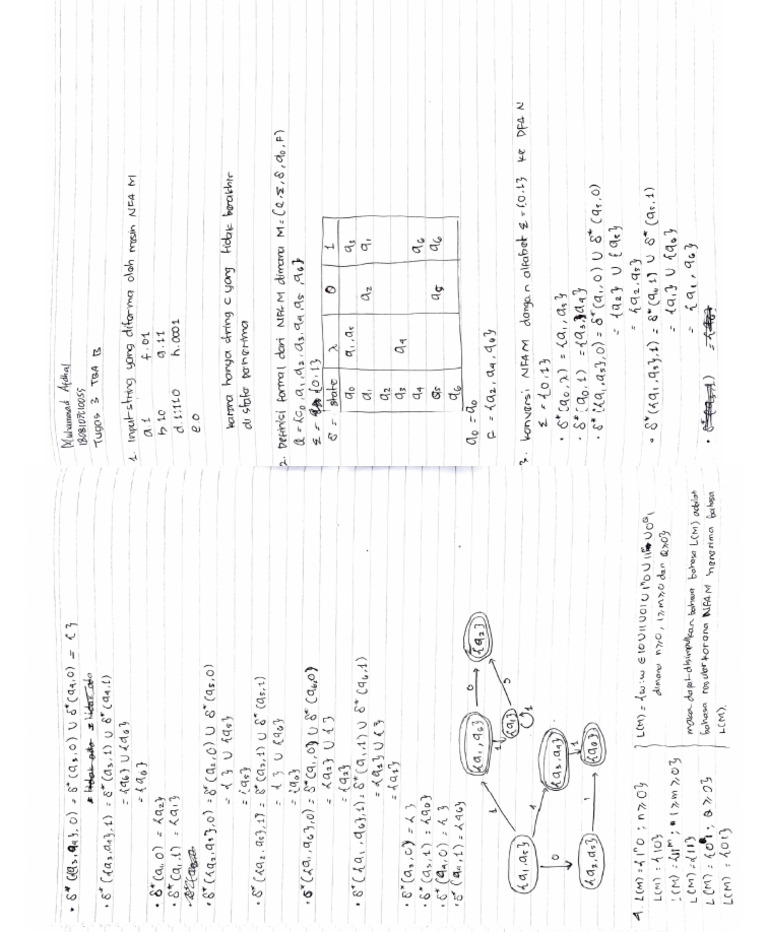 Muhammad Afdhal
1808107010055
Tugas 3 TBA B
1. Input string yang diterima oleh mesin NFA M
a. 1 f. 01
b. 10 g. 11
d. 11110 h. 001
e. 0
karena hanya string c yang tidak berakhir
di state penerima
2. Definisi formal dari NFA M dimana M = (Q, Σ, δ, q0, F)
Q = {q0, q1, q2, q3, q4, q5, q6}
Σ = {0,1}
δ =
state λ 0 1
q0 q1, q5 q3
q1 q2 q1
q2
q3 q4
q4 q6
q5 q5 q6
q6
q0 = q0
F = {q2, q4, q6}
3. konversi NFA M dengan alfabet Σ = {0,1} ke DFA N
Σ = {0,1}
• δ*(q0, λ) = {q1, q5}
• δ*(q0, 1) = {q3, q4}
• δ*({q1, q5}, 0) = δ*(q1, 0) ∪ δ*(q5, 0)
= {q2} ∪ {q5}
= {q2, q5}
• δ*({q1, q5}, 1) = δ*(q1, 1) ∪ δ*(q5, 1)
= {q1} ∪ {q6}
= {q1, q6}
• δ*({q3, q4}, 0) = δ*(q3, 0) ∪ δ*(q4, 0) = { }
• δ*({q3, q4}, 1) = δ*(q3, 1) ∪ δ*(q4, 1)
= {q6} ∪ {q6}
= {q6}
• δ*(q1, 0) = {q2}
• δ*(q1, 1) = {q1}
• δ*({q2, q5}, 0) = δ*(q2, 0) ∪ δ*(q5, 0)
= { } ∪ {q5}
= {q5}
• δ*({q2, q5}, 1) = δ*(q2, 1) ∪ δ*(q5, 1)
= { } ∪ {q6}
= {q6}
• δ*({q1, q6}, 0) = δ*(q1, 0) ∪ δ*(q6, 0)
= {q2} ∪ { }
= {q2}
• δ*({q1, q6}, 1) = δ*(q1, 1) ∪ δ*(q6, 1)
= {q1} ∪ { }
= {q1}
• δ*(q3, 0) = { }
• δ*(q3, 1) = {q6}
• δ*(q4, 0) = { }
• δ*(q4, 1) = {q6}
{q1, q5} 1 {q1, q6} 0 {q2}
1 {q1} 0 1
1 {q3, q4} 1 {q6}
0 {q2, q5} 1
4. L(M) = {1ⁿ0 ; n ≥ 0}
L(M) = {10}
L(M) = {11ᵐ ; 1 ≥ m ≥ 0}
L(M) = {11}
L(M) = {0ᵃ1 ; a ≥ 0}
L(M) = {01}
L(M) = {w : w ∈ 10 ∪ 11 ∪ 01 ∪ 1ⁿ0 ∪ 11ᵐ ∪ 0ᵃ1
dimana n ≥ 0, 1 ≥ m ≥ 0 dan a ≥ 0}
maka dapat disimpulkan bahwa bahasa L(M) adalah
bahasa regular karena NFA M menerima bahasa
L(M).